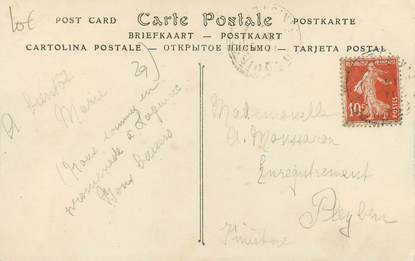 10€
POST CARD Carte Postale POSTKARTE
BRIEFKAART — POSTKAART
CARTOLINA POSTALE — ОТКРЫТОЕ ПИСЬМО — TARJETA POSTAL
29)
A bientôt
Marie
Nous sommes en
promenade à
Bons baisers
10c
POSTES
Mademoiselle
A.
Enregistrement
Finistère